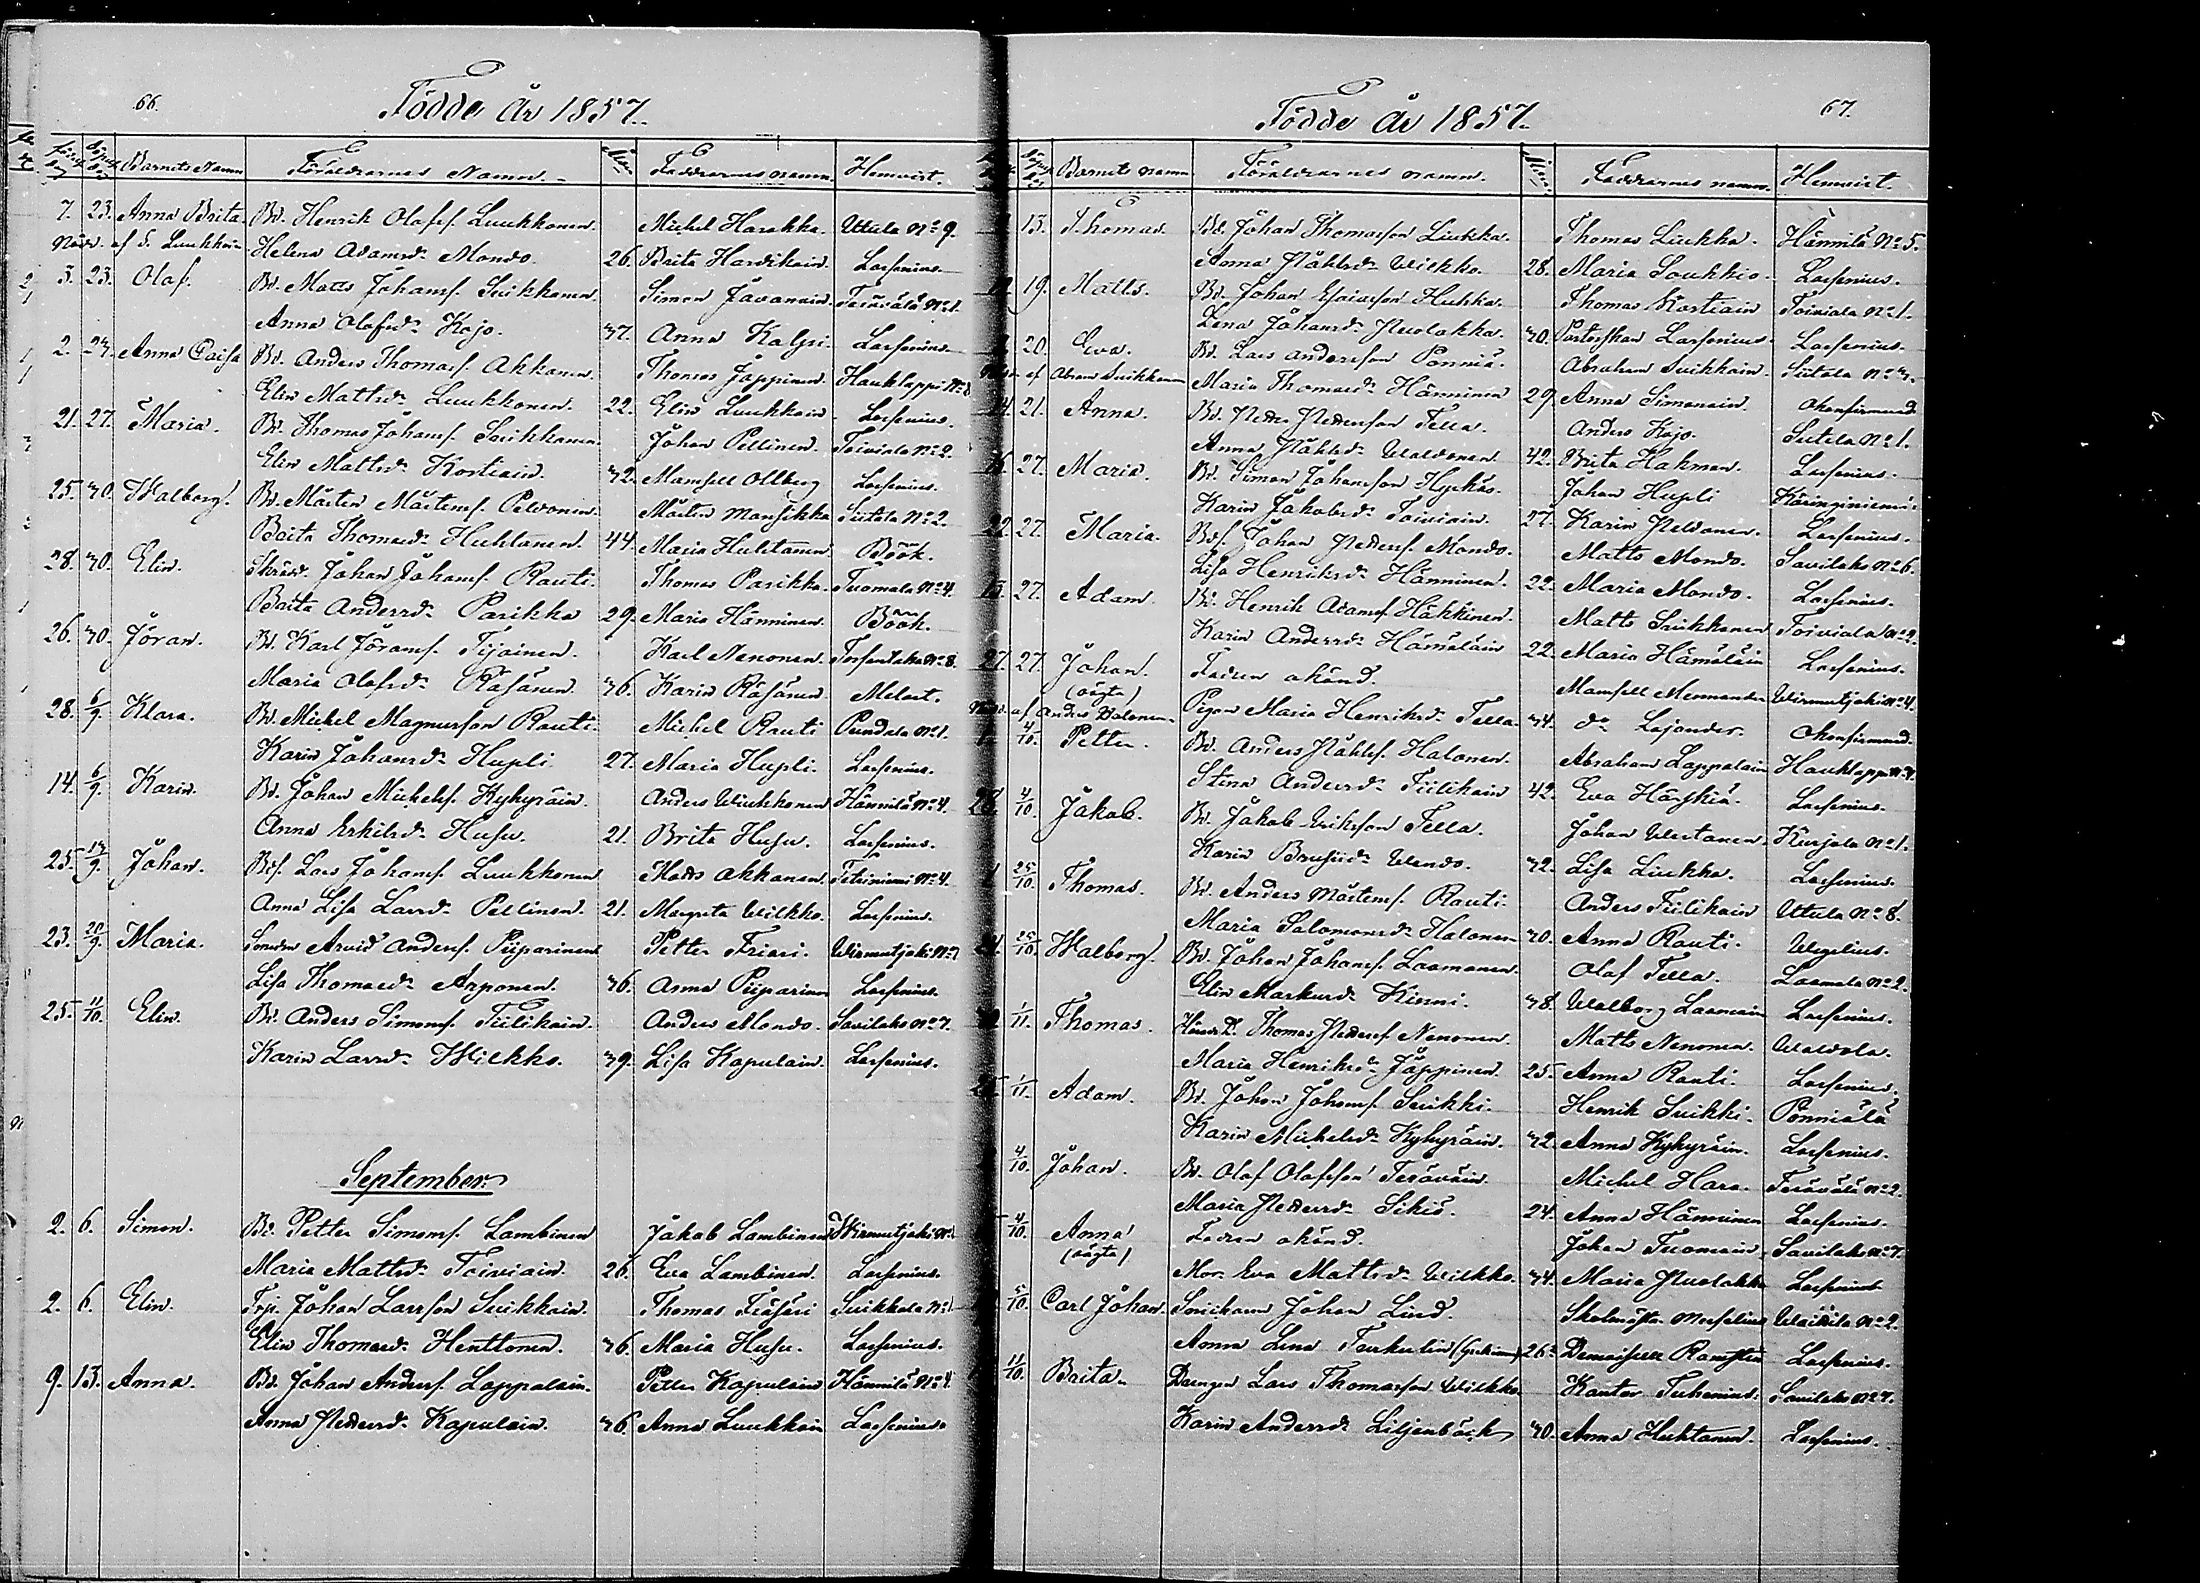 66.
Födde År 1857.
Barnets Namn Föräldrarnes Namn. Faddrarnes namn. Hemvist.
7. 23. Anna Brita. Bd. Henrik Olofsf. Luukkonen. Michel Harakka. Uttula No 9.
Nödd. af S. Luukkain Helena Adamsdr Mondo. 26. Brita Hardikain. Larsenius.
3. 23. Olof. Bd. Matts Johansf. Suikkanen. Simon Javanain. Teräväla No 1.
Anna Olofsdr Kojo. 37. Anna Kalpi. Larsenius.
2. 23. Anna Caisa Bd. Anders Thomasf. Akkanen. Thomas Jäppinen. Hauklappi No 8
Elin Mattsdr Luukkonen. 22. Elin Luukkain. Larsenius.
21. 27. Maria. Bd. Thomas Johansf. Suikkanen. Johan Pellinen. Toiviala No 2.
Elin Mattsdr Kostiain. 32. Mamsell Ollberg Larsenius.
25. 30. Walborg. Bd. Mårten Mårtensf. Peldonen. Mårten Mansikka Siitola No 2.
Brita Thomasdr Huhtanen. 44. Maria Huhtanen Böök.
28. 30. Elin. Skrädd. Johan Johansf. Rauti. Thomas Parikka. Tuomala No 4.
Brita Andersdr Parikka 29. Maria Hänninen. Böök.
26. 30. Jöran. Bd. Karl Jöransf. Tijainen. Karl Nenonen. Torsanlaks No 8.
Maria Olofsdr Räsänen. 36. Karin Räsänen. Melart.
28. 6/9. Klara. Bd. Michel Magnusson Rauti. Michel Rauti Pundala No 1.
Karin Johansdr Hupli 27. Maria Hupli. Larsenius.
14. 6/9. Karin. Bd. Johan Michelsf. Kykyräin. Anders Wiukkonen Hännilä No 4.
Anna Erkilsdr Husu. 21. Brita Husu. Larsenius.
25. 13/9. Johan. Bdsf. Lars Johansf. Luukkonen Matts Akkanen. Tetriniemi No 4.
Anna Lisa Larsdr Pellinen. 21. Margreta Wilkko. Larsenius.
23. 20/9. Maria. Arvid Andersf. Piiparinen Petter Friari. Wirmutjoki No 7
Lisa Thomasdr Arponen. 36. Anna Piiparinen Larsenius.
25. 11/10. Elin. Bd. Anders Simonsf. Tiilikain. Anders Mondo. Savilaks No 7.
Karin Larsdr Wilkko. 39. Lisa Kapulain. Larsenius.
September.
2. 6. Simon. Bd. Petter Simonsf. Lambinen Jakob Lambinen Wirmutjoki No
Maria Mattsdr Toiviain. 26. Eva Lambinen. Larsenius.
2. 6. Elin. Torp. Johan Larsson Suikkain. Thomas Fräsäri Suikkala No 1
Elin Thomasdr Henttonen. 36. Maria Husu. Larsenius.
9. 13. Anna. Bd. Johan Andersf. Lappalain. Petter Kapulain Hännilä No 4.
Anna Pettersdr Kapulain. 36. Anna Luukkain Larsenius.
67.
Födde År 1857.
Barnets namn Föräldrarnes namn. Faddrarnes namn. Hemvist.
13. Thomas. Bd. Johan Thomasson Liukka. Thomas Liukka. Hännilä No 5.
Anna Påhlsdr Wilkko. 28. Maria Soukkio. Larsenius.
19. Matts. Bd. Johan Esaiasson Hukka. Thomas Kostiain Toiviala No 1.
Lena Johansdr Puolakka. 30. Pastorskan Larsenius. Larsenius.
20. Eva. Bd. Lars Andersson Ponniä. Abraham Suikkain. Siitola No 3.
af Abram Suikkanen Maria Thomasdr Hänninen 29. Anna Simonain. Okonfirmerad
14. 21. Anna. Bd. Petter Pettersson Tella. Anders Kojo. Siitola No 1.
Anna Påhlsdr Waldonen 42. Brita Hakman. Larsenius.
16. 27. Maria. Bd. Simon Johansson Hyrkäs. Johan Hupli Käringiniemi
Karin Jakobsdr Toiviain. 27. Karin Peldonen. Larsenius.
22. 27. Maria. Bdsf. Johan Pettersf. Mondo. Matts Mondo. Savilaks No 6.
Lisa Henriksdr Hänninen. 22. Maria Mondo. Larsenius.
27. Adam. Bd. Henrik Adamsf. Häkkinen. Matts Suikkanen Toiviala No 2.
Karin Andersdr Hämäläin 22. Maria Hämäläin Larsenius.
27. 27. Johan. Fadren okänd. Mamsell Mennander Wirmutjoki No 4.
(oägta)
af Anders Halonen Pigan Maria Henriksdr Tella. 34. do Lojander. Okonfirmerad.
4/10. Petter. Bd. Anders Påhlsf. Halonen. Abraham Lappalain Hauklappi No 4.
Stina Andersdr Tiilikain 42. Eva Härskiä. Larsenius.
4/10. Jakob. Bd. Jakob Eriksson Tella. Johan Wertanen. Kurjala No 1.
Karin Brusiidr Wendo. 32. Lisa Liukka. Larsenius.
25/10. Thomas. Bd. Anders Mårtensf. Rauti. Anders Tiilikain Utula No 8.
Maria Salomonsdr Halonen 30. Anna Rauti. Wegelius.
25/10. Walborg. Bd. Johan Johansf. Laamanen. Olof Tella. Laamala No 2.
Elin Markusdr Kinni. 38. Walborg Laamain Larsenius.
1/11. Thomas. Thomas Pettersf. Nenonen. Matts Nenonen. Waldola.
Maria Henriksdr Jäppinen. 25. Anna Rauti. Larsenius.
1/11. Adam. Bd. Johan Johansf. Suikki. Henrik Suikki. Ponniälä
Karin Michelsdr Kykyräin. 32. Anna Kykyräin. Larsenius.
4/10. Johan. Bd. Olof Olofsson Teräväin. Michel Hara. Terävälä No 2.
Maria Pettersdr Sikiö. 24. Anna Hänninen Larsenius.
4/10. Anna Fadren okänd. Johan Tuomain. Savilaks No 7.
(oägta)
Mor. Eva Mattsdr Wilkko. 34. Maria Puolakka Larsenius
5/10. Carl Johan. Johan Lind. Skolmäst. Waikila No 2.
Anna Lena 26. Demoiselle Larsenius.
11/10. Brita. Drengen Lars Thomasson Wilkko. Kantor Tuhenius. Savilaks No 7.
Karin Andersdr Liljenbäck 30. Anna Huhtanen. Larsenius.